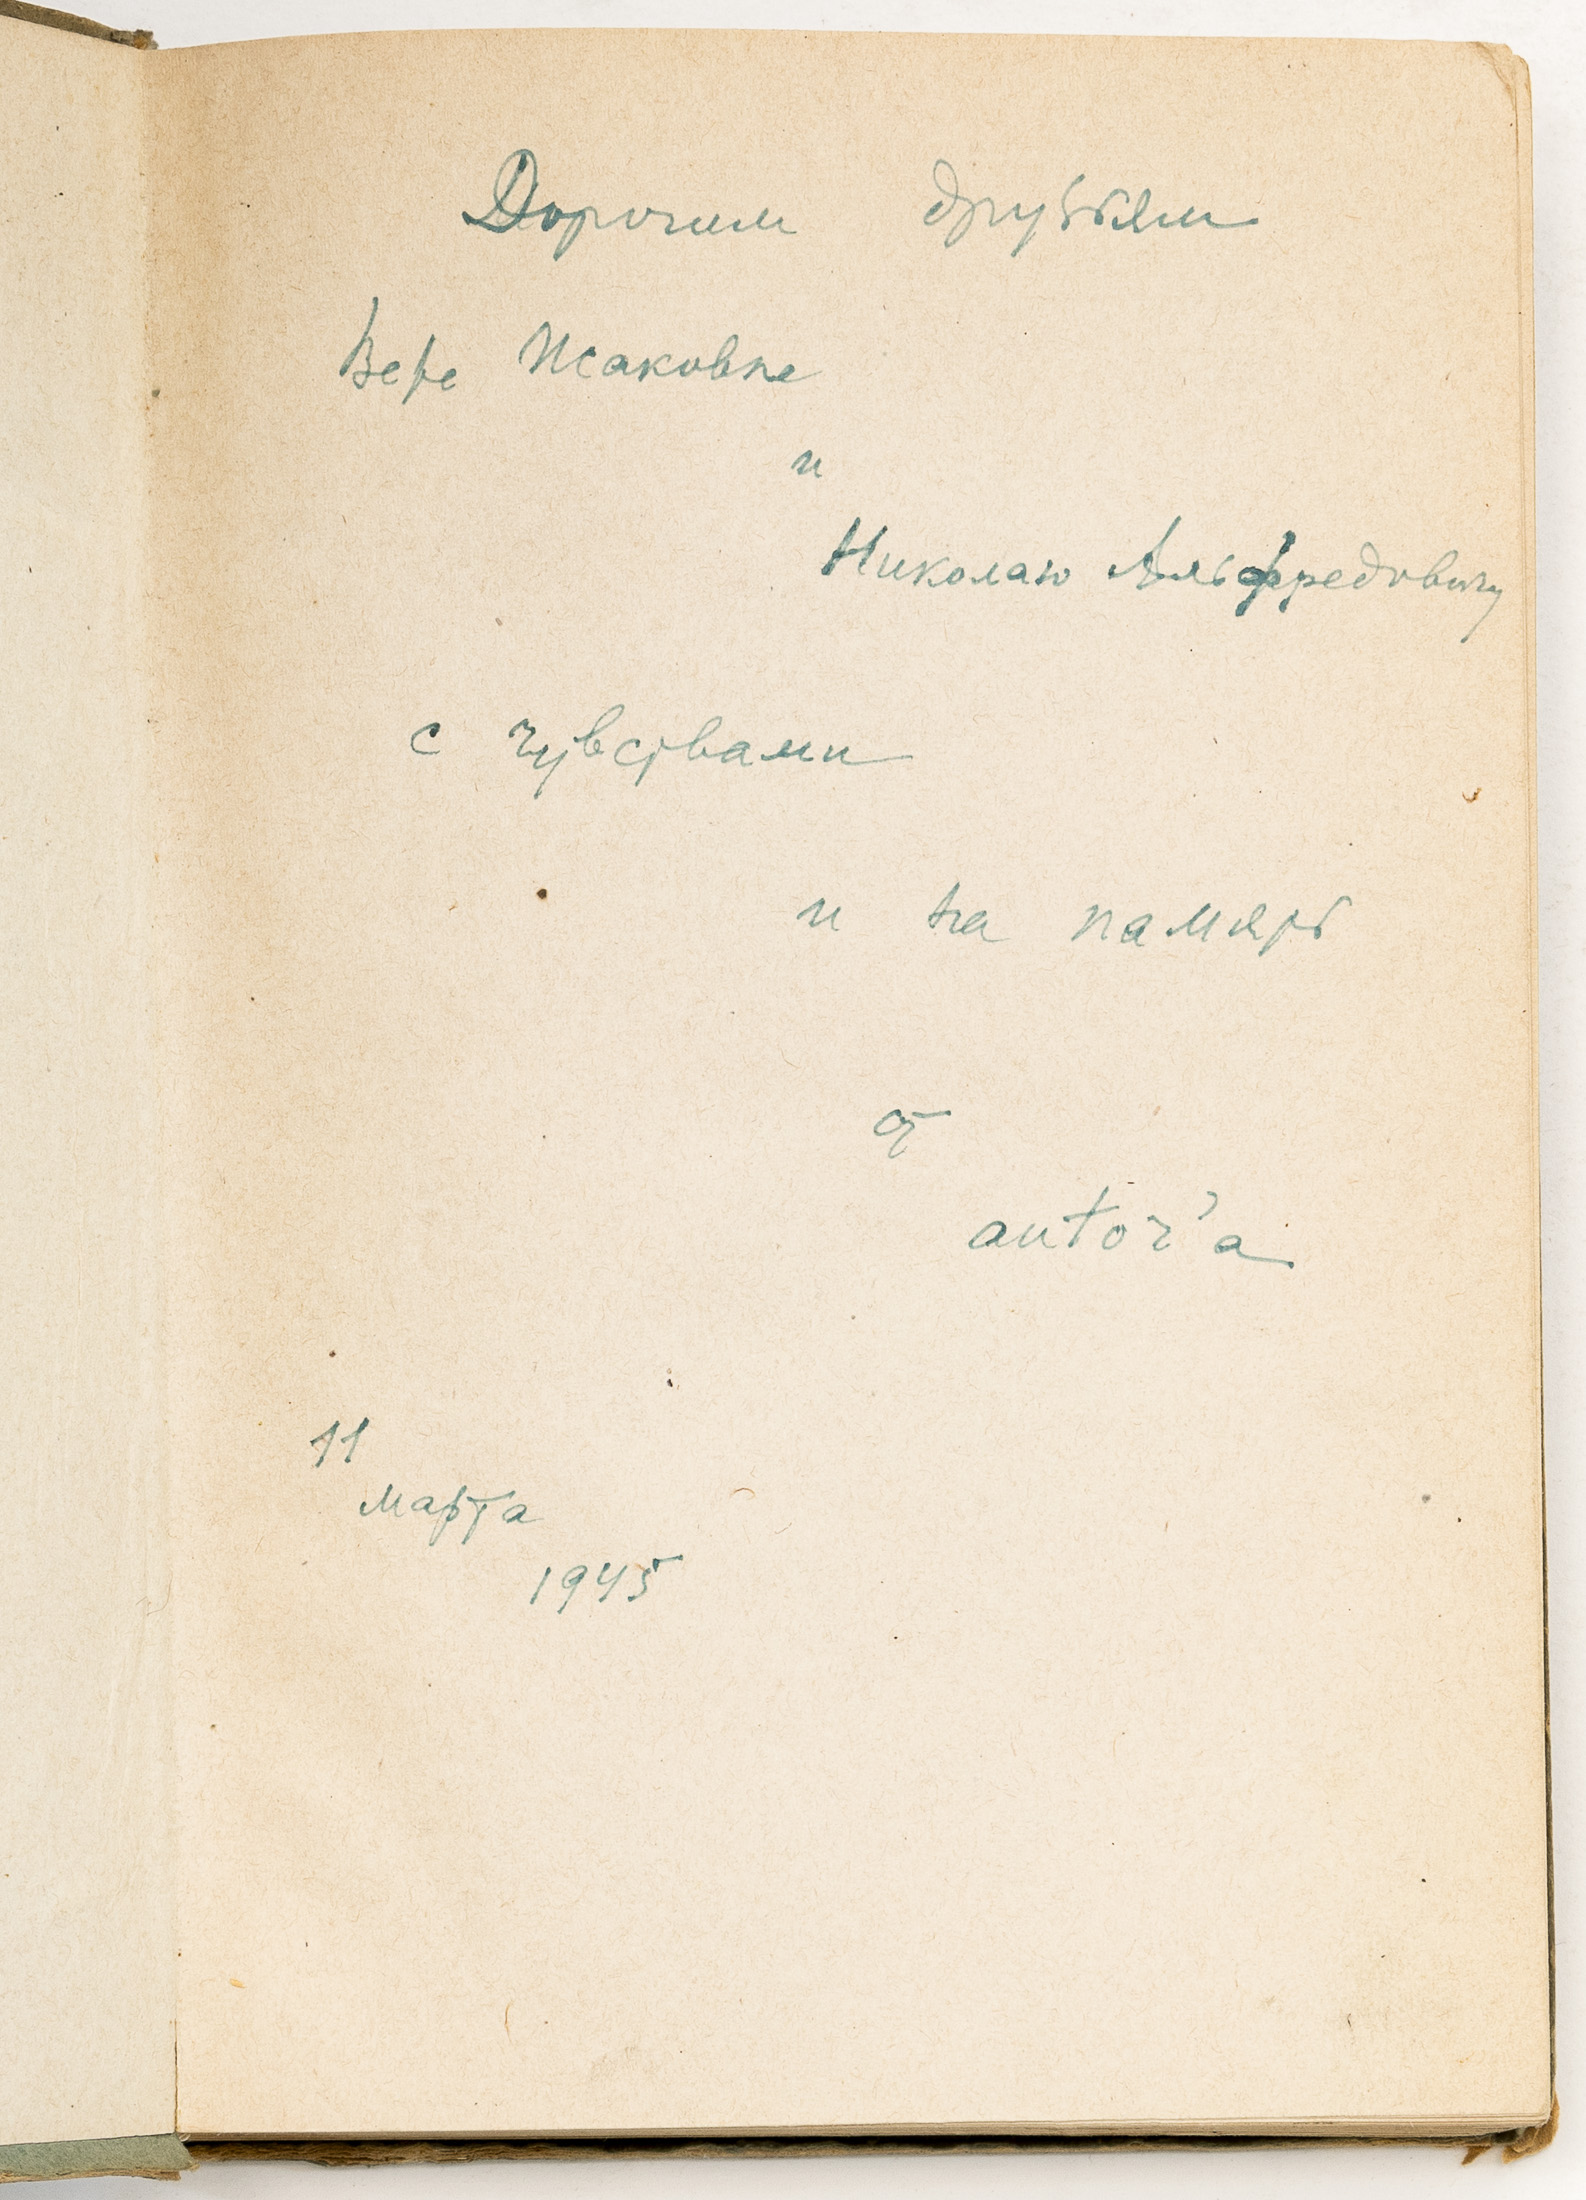 Дорогим друзьям
Вере Исаковне
и
Николаю Альфредовичу
с чувствами
и на память
от
autor'a
11
марта
1945